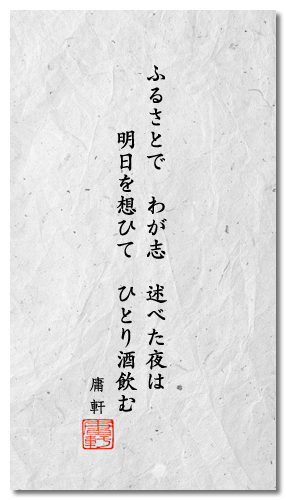 ふるさとで　わが志　述べた夜は
明日を想ひて　ひとり酒飲む
庸軒
庸軒